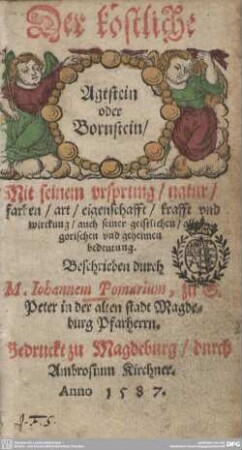 Der köstliche
Agtstein
oder
Bornstein/
Mit seinem vrsprung/ natur/
farben/ art/ eigenschafft/ krafft vnd
wirckung/ auch seiner geistlichen/
gorischen vnd geheimen
bedeutung.
Beschrieben durch
M. Iohannem Pomarium, zu S.
Peter in der alten stadt Magde-
burg Pfarherrn.
Gedruckt zu Magdeburg/ durch
Ambrosium Kirchner.
Anno 1587.
J. F. S.